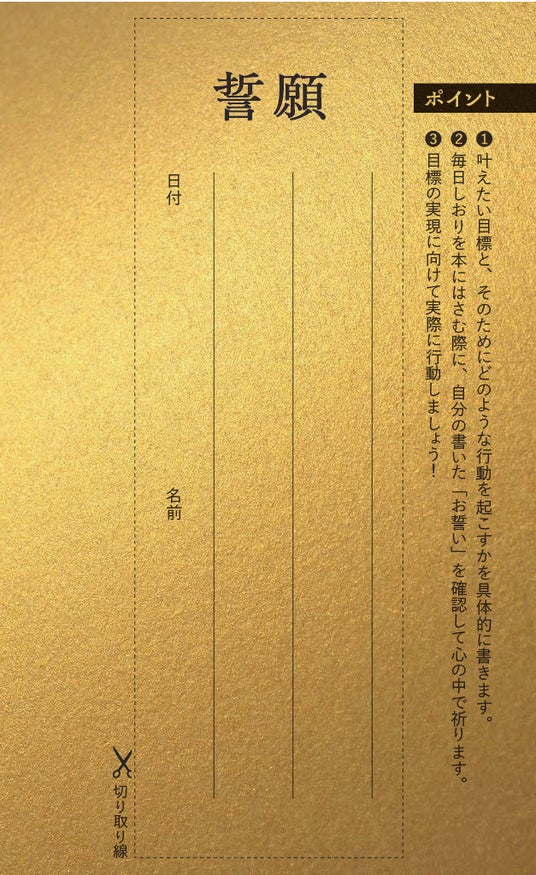 ポイント
❶叶えたい目標と、そのためにどのような行動を起こすかを具体的に書きます。
❷毎日しおりを本にはさむ際に、自分の書いた「お誓い」を確認して心の中で祈ります。
❸目標の実現に向けて実際に行動しましょう！
誓願
日付
名前
切り取り線